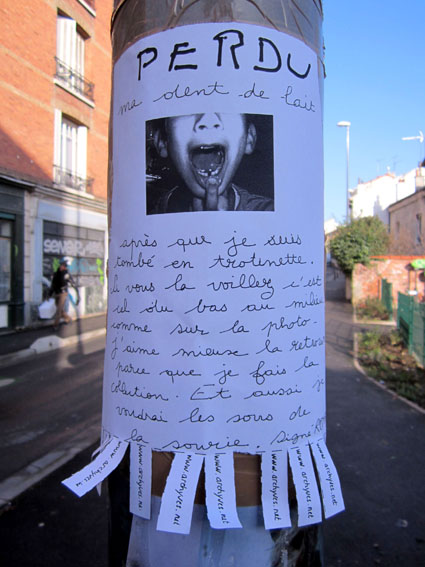 PERDU
ma dent de lait
après que je suis
tombé en trotinette.
si vous la voillez c'est
cel du bas au milieu
comme sur la photo.
j'aime mieuse la retrouv
parce que je fais la
colection. Et aussi je
voudrai les sous de
la sourie. Signé
www.archyves.net
www.archyves.net
www.archyves.net
www.archyves.net
www.archyves.net
www.archyves.net
www.archyves.net